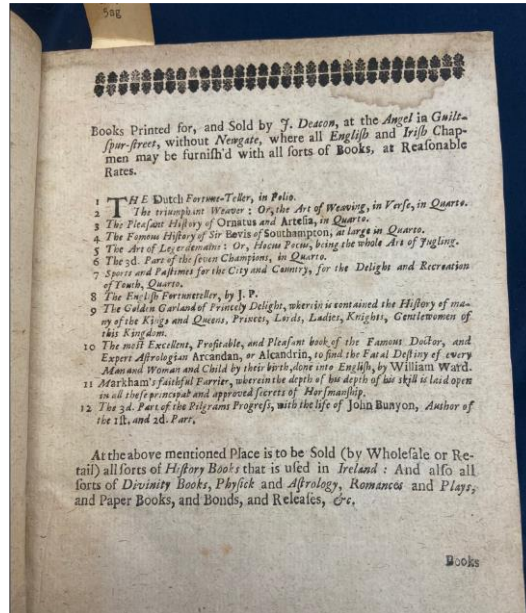 5ag
Books Printed for, and Sold by J. Deacon, at the Angel in Guilt-
spur-street, without Newgate, where all English and Irish Chap-
men may be furnish'd with all sorts of Books, at Reasonable
Rates.
1 THE Dutch Fortune-Teller, in Folio.
2 The triumphant Weaver: Or, the Art of Weaving, in Verse, in Quarto.
3 The Pleasant History of Ornatus and Artesia, in Quarto.
4 The Famous History of Sir Bevis of Southampton, at large in Quarto.
5 The Art of Legerdemaine: Or, Hocus Pocus, being the whole Art of Jugling.
6 The 3d. Part of the seven Champions, in Quarto.
7 Sports and Pastimes for the City and Country, for the Delight and Recreation
of Youth, Quarto.
8 The English Fortuneteller, by J. P.
9 The Golden Garland of Princely Delight, wherein is contained the History of ma-
ny of the Kings and Queens, Princes, Lords, Ladies, Knights, Gentlewomen of
this Kingdom.
10 The most Excellent, Profitable, and Pleasant book of the Famous Doctor, and
Expert Astrologian Arcandan, or Alcandrin, to find the Fatal Destiny of every
Man and Woman and Child by their birth, done into English, by William Ward.
11 Markham's faithful Farrier, wherein the depth of his depth of his skill is laid open
in all these principal and approved secrets of Horsmanship.
12 The 3d. Part of the Pilgrams Progress, with the life of John Bunyon, Author of
the 1st. and 2d. Part.
At the above mentioned Place is to be Sold (by Wholesale or Re-
tail) all sorts of History Books that is used in Ireland: And also all
sorts of Divinity Books, Physick and Astrology, Romances and Plays,
and Paper Books, and Bonds, and Releases, &c.
Books